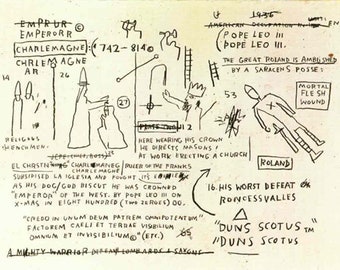 EMPRUR
EMPERORR ©
CHARLEMAGNE: (742-814©)
CHRLEMAGNE
AR
14
26
27
RELIGOUS
HENCHMEN.
PLATE TWO: 2
HERE WEARING HIS CROWN
HE DIRECTS MASONS!
AT WORK ERECTING A CHURCH
4 1936
AMERICAN OCCUPATION IN EN
(POPE LEO III
(POPE LEO III.
THE GREAT ROLAND IS AMBUSHED
BY A SARACENS POSSE:
53
MORTAL
FLESH
WOUND
ROLAND
EL CHRSTN CHARLEMANEG RULER OF THE FRANKS
CHARLEMAGNE
SUBSIPISED LA IGLESIA AND FOUGHT ITS ENEMIES
AS HIS DOG/GOD DISCUT HE WAS CROWNED
"EMPEROR" OF THE WEST. BY POPE LEO III ON
X-MAS IN EIGHT HUNDRED (TWO ZEROES) 00.
"CREDO IN UNUM DEUM PATREM OMNIPOTENTUM,
FACTOREM CAELI ET TERRAE VISIBILIUM
OMNIUM ET INVISIBILIUM©" (ETC.) 65
A MIGHTY WARRIOR DEFEAT LOMBARDS & SAXONS
16. HIS WORST DEFEAT
RONCESVALLES
"DUNS SCOTUS™
"DUNS SCOTUS